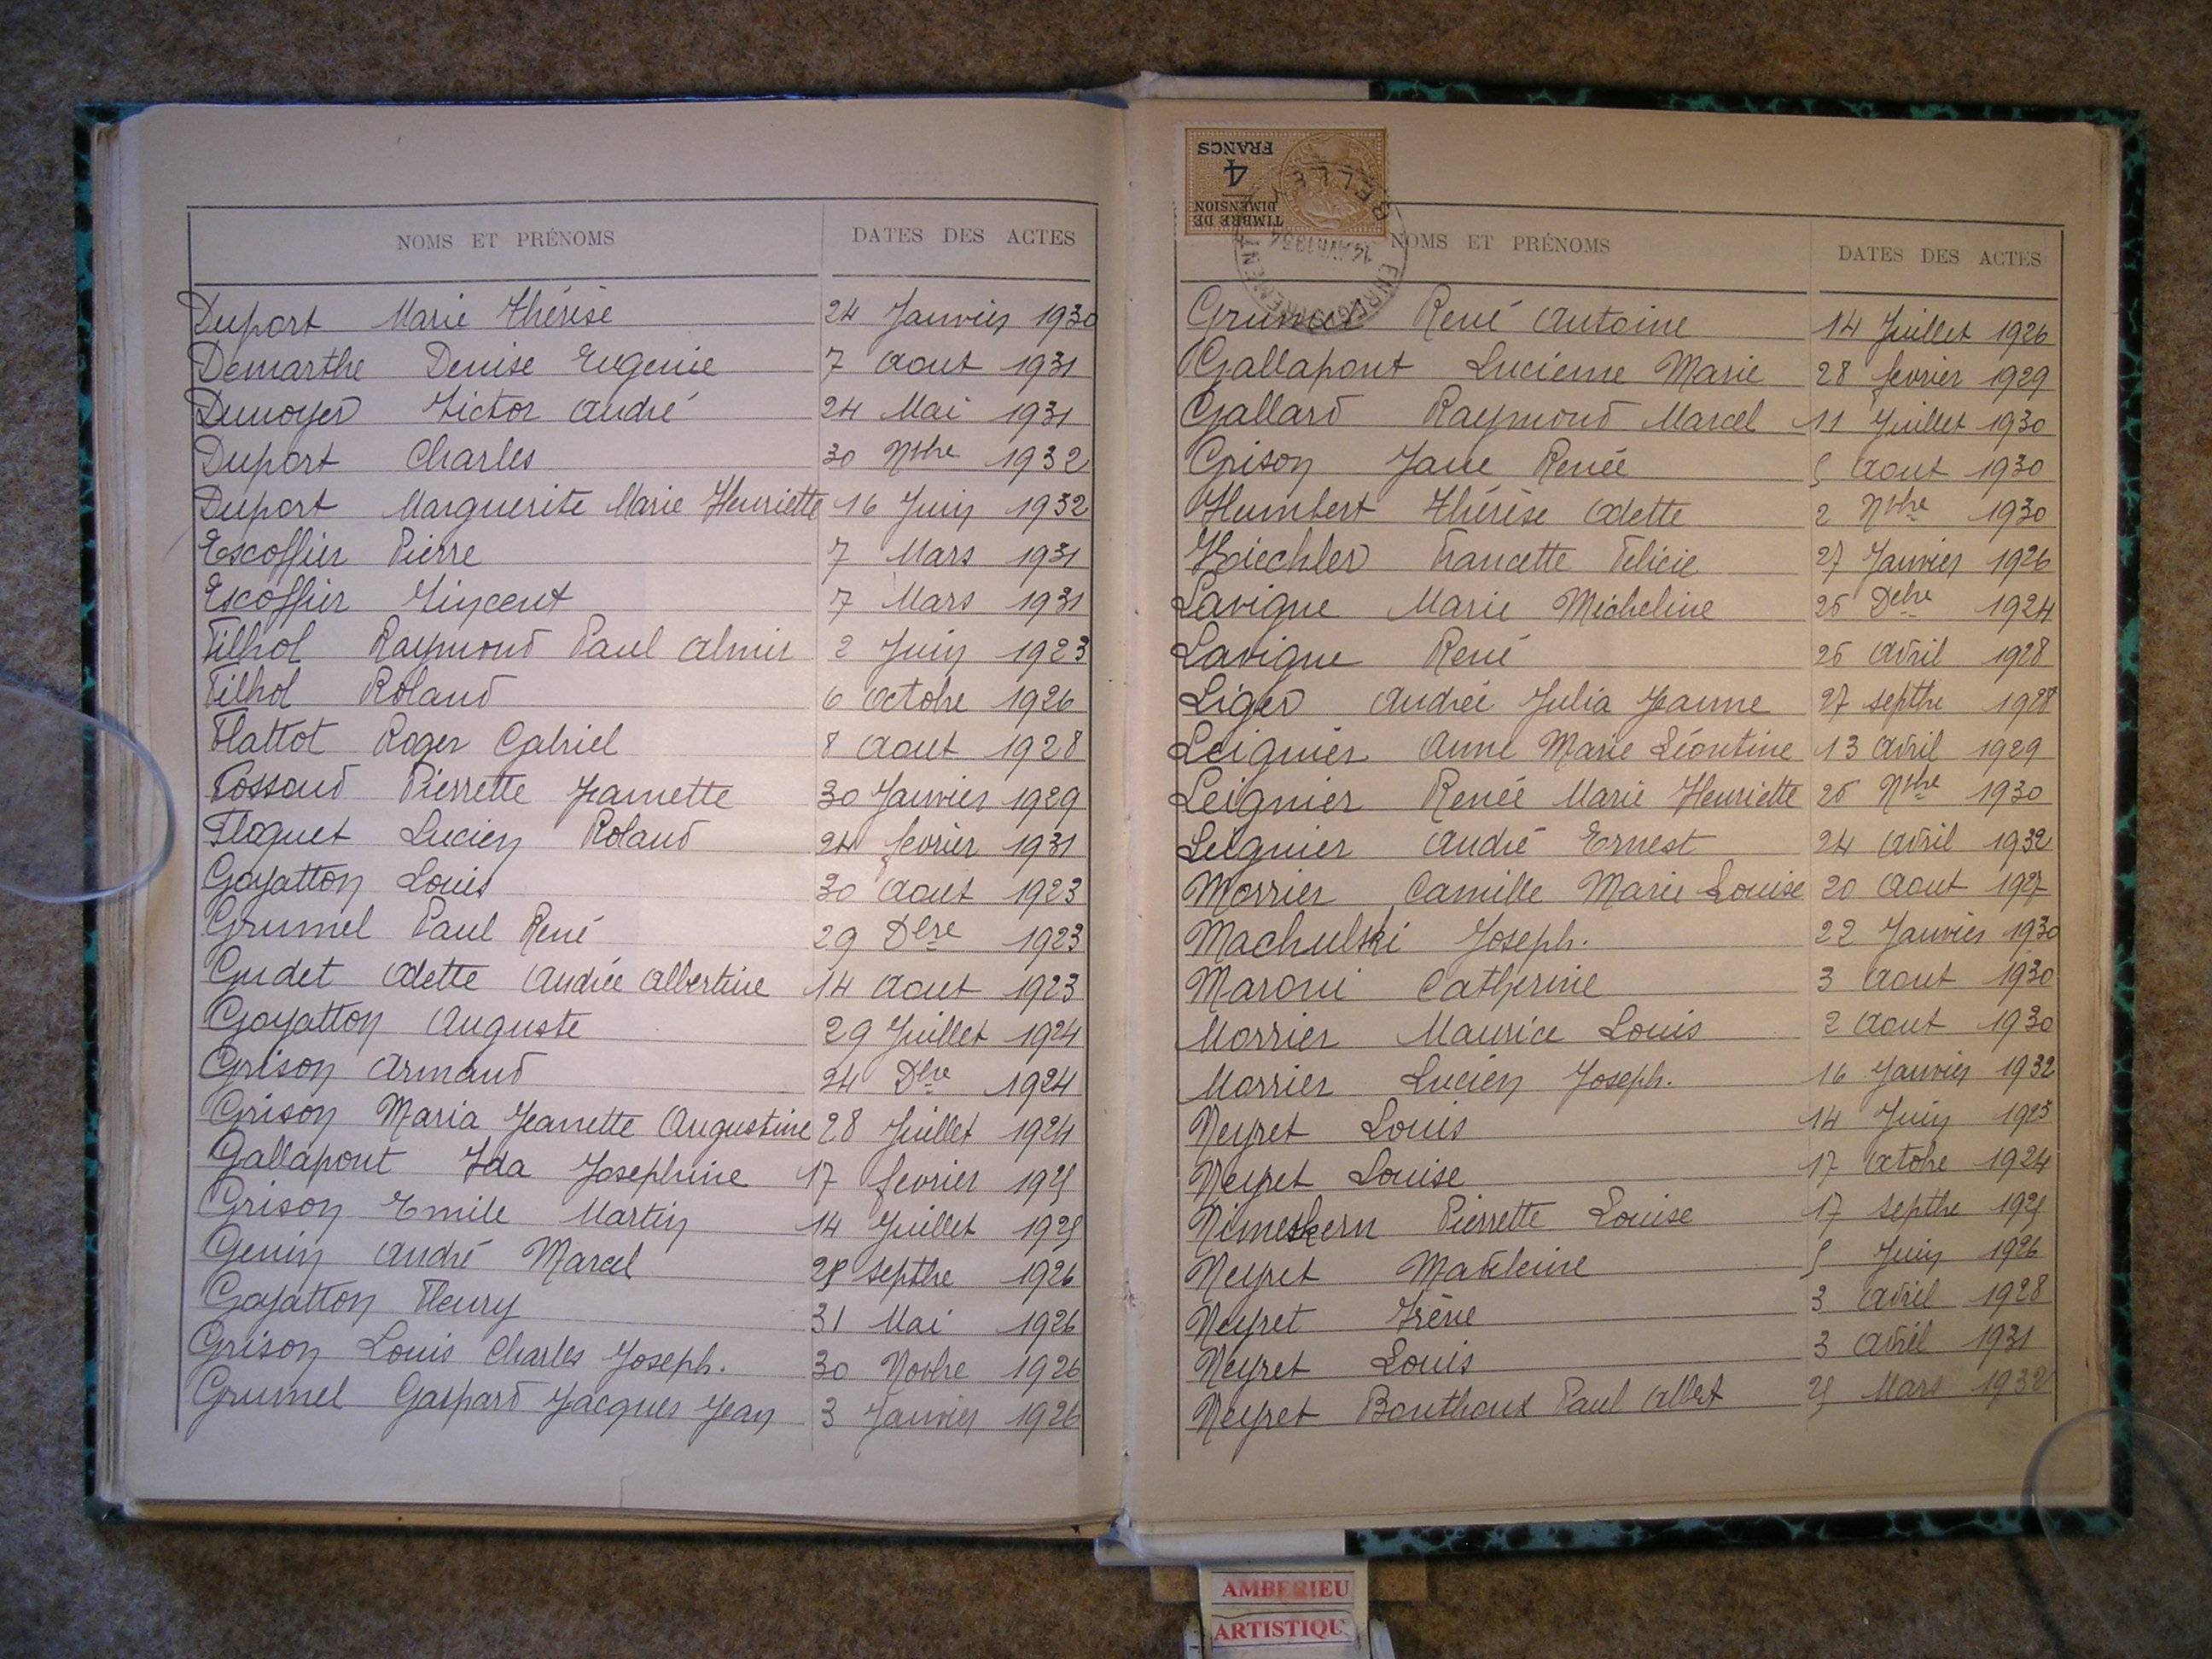 NOMS ET PRÉNOMS DATES DES ACTES
Duport Marie Thérèse 24 Janvier 1930
Demarthe Denise Eugenie 7 Aout 1931
Dunoyer Victor André 24 Mai 1931
Duport Charles 30 Nbre 1932
Duport Marguerite Marie Henriette 16 Juin 1932
Escoffier Pierre 7 Mars 1931
Escoffier Vincent 7 Mars 1931
Filhol Raymond Paul Almir 2 Juin 1923
Filhol Roland 6 Octobre 1926
Flattot Roger Gabriel 8 Aout 1928
Fossoud Pierrette Jeannette 30 Janvier 1929
Floquet Lucien Roland 24 fevrier 1931
Goyatton Louis 30 Aout 1923
Grumel Paul René 29 Dbre 1923
Gudet Odette Andrée Albertine 14 Aout 1923
Goyatton Auguste 29 Juillet 1924
Grison Armand 24 Dbre 1924
Grison Maria Jeannette Augustine 28 Juillet 1924
Gallapont Ida Josephine 17 fevrier 1925
Grison Emile Martin 14 Juillet 1925
Genin André Marcel septbre 1926
Goyatton Fleury 31 Mai 1926
Grison Louis Charles Joseph. 30 Novbre 1926
Grumel Gaspard Jacques Jean 3 Janvier 1926
TIMBRE DE DIMENSION
4
FRANCS
NOMS ET PRÉNOMS DATES DES ACTES
Grumel René Antoine 14 Juillet 1926
Gallapont Lucienne Marie 28 fevrier 1929
Gallard Raymond Marcel 11 Juillet 1930
Grison Jane Renée 5 Aout 1930
Humbert Thérèse Odette 2 Nbre 1930
Kiechler Francette Felicie 27 Janvier 1926
Lavigne Marie Micheline 26 Dbre 1924
Lavigne René 26 Avril 1928
Liger Andrée Julia Jeanne 27 septbre 1928
Leignier Anne Marie Léontine 13 Avril 1929
Leignier Renée Marie Henriette 26 Nbre 1930
Leignier André Ernest 24 Avril 1932
Morrier Camille Marie Louise 20 Aout 1927
Machulski Joseph. 22 Janvier 1930
Maroni Catherine 3 Aout 1930
Morrier Maurice Louis 2 Aout 1930
Morrier Lucien Joseph. 16 Janvier 1932
Neyret Louis 14 Juin 1923
Neyret Louise 17 Octobre 1924
Nimeskern Pierrette Louise 17 septbre 1925
Neyret Madeleine 5 Juin 1926
Neyret Irène 3 Avril 1928
Neyret Louis 3 Avril 1931
Neyret Bouthoux Paul Albert 25 Mars 1932
AMBERIEU
ARTISTIQU